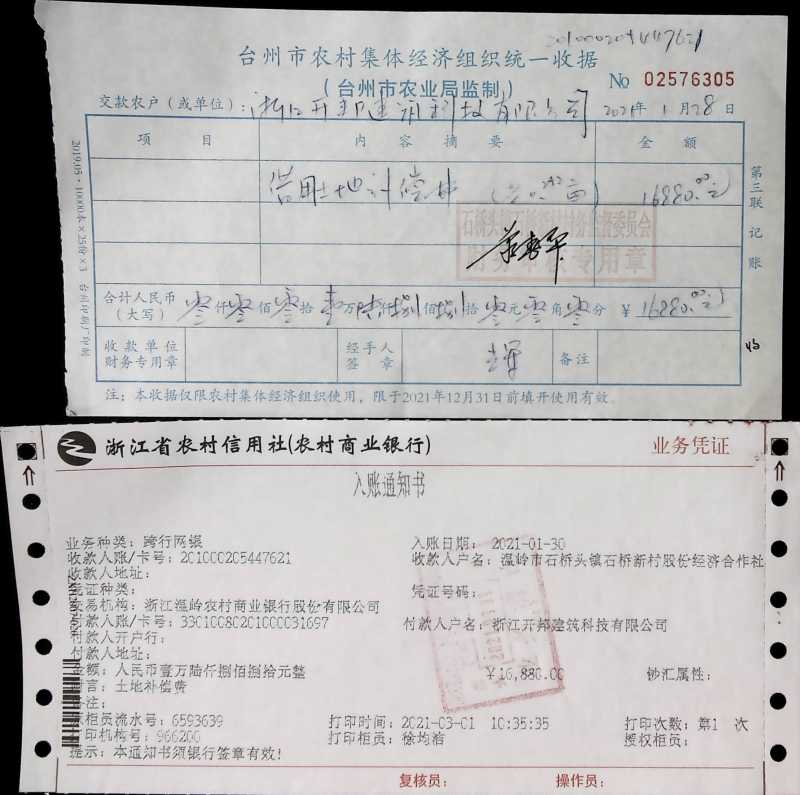 201000205447621
台州市农村集体经济组织统一收据
(台州市农业局监制)
No 02576305
交款农户（或单位）：浙江开邦建筑科技有限公司 2021年1月28日
项目 内容摘要 金额
借用土地补偿款 16880.00元
石桥头镇石桥新村财务监督委员会
财务审核专用章
合计人民币 零仟零佰零拾壹万陆仟捌佰捌拾零元零角零分 ￥16880.00元
(大写)
收款单位 经手人 备注
财务专用章 签章
注：本收据仅限农村集体经济组织使用，限于2021年12月31日前填开使用有效。
第三联 记账
2019.05·10000本×25份×3 台州印刷厂印制
浙江省农村信用社(农村商业银行) 业务凭证
入账通知书
业务种类：跨行网银 入账日期：2021-01-30
收款人账/卡号：201000205447621 收款人户名：温岭市石桥头镇石桥新村股份经济合作社
收款人地址：
凭证种类： 凭证号码：
交易机构：浙江温岭农村商业银行股份有限公司
付款人账/卡号：33010080201000031697 付款人户名：浙江开邦建筑科技有限公司
付款人开户行：
付款人地址：
金额：人民币壹万陆仟捌佰捌拾元整 ￥16,880.00 钞汇属性：
附言：土地补偿费
备注：
柜员流水号：6593639 打印时间：2021-03-01 10:35:35 打印次数：第1 次
打印机构号：966200 打印柜员：徐均浩 授权柜员：
提示：本通知书须银行签章有效！
复核员： 操作员：